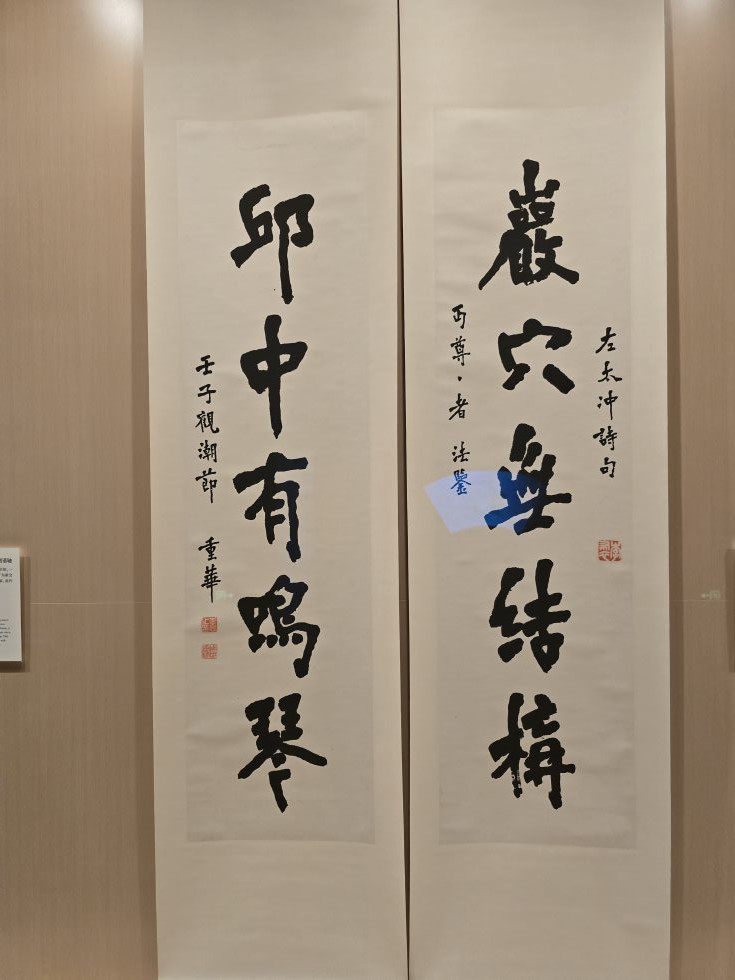 左太冲詩句
巖穴無結構
丏尊尊者 法鑒
邱中有鳴琴
壬子觀潮節 重華